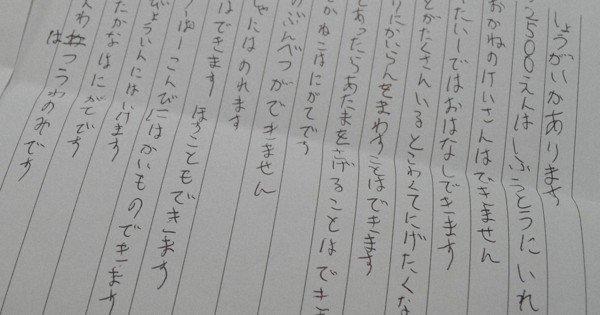 しょうがいがあります
2500えんは ふうとうにいれ
おかねのけいさんはできません
たい1ではおはなしできます
とがたくさんいるとこわくてにげたくな
りにかいらんをまわすことはできます
あったらあたまをさげることはでき
ねこはにがてです
のぶんべつができません
にはのれます
はできます ほすこともできます
ぱーこんびにはかいものできます
びょういんにはいけます
たかなはにがてです
んわはつうわのみです